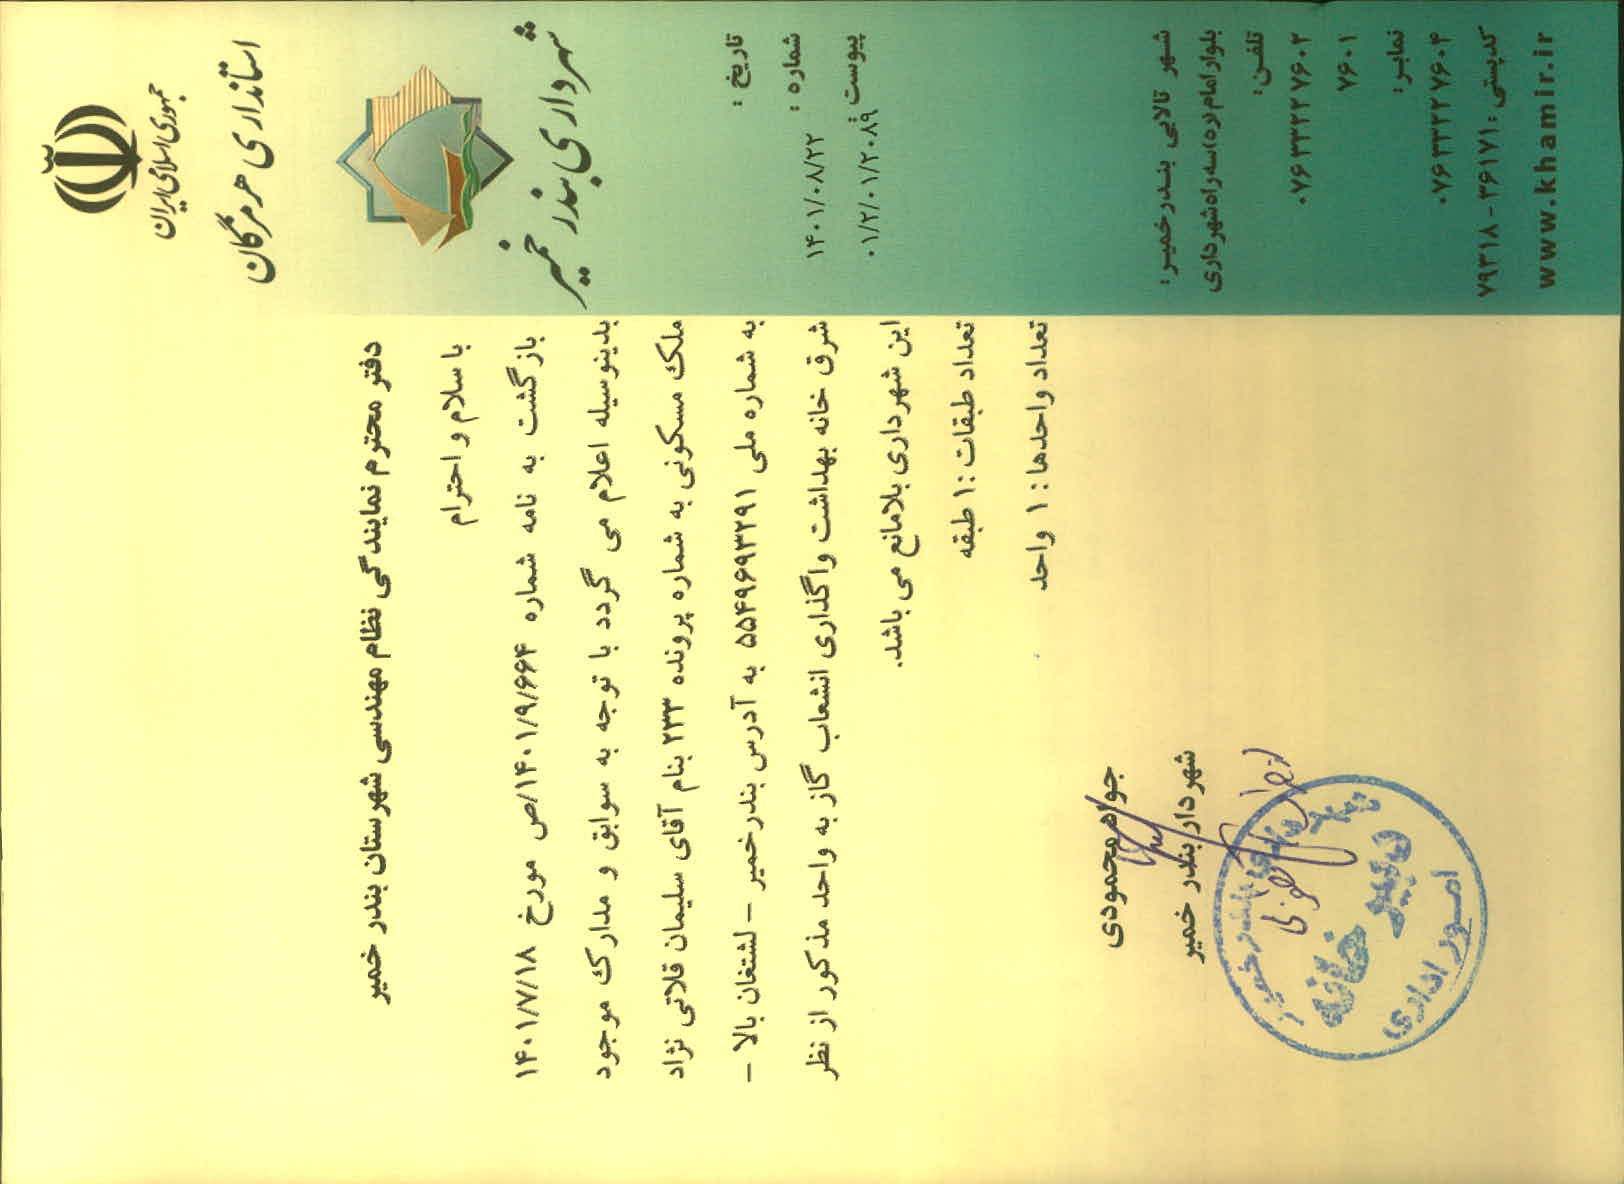 جمهوری اسلامی ایران
استانداری هرمزگان
شهرداری بندر خمیر
تاریخ :
شماره :
۱۴۰۱/۰۸/۲۲
پیوست :
۰۱/۲/۰۱/۲۰۸۹
شهر تالابی بندرخمیر:
بلوار امام(ره)سه راه شهرداری
تلفن:
۰۷۶۳۳۲۲۷۶۰۲
۷۶۰۱
نمابر:
۰۷۶۳۳۲۲۷۶۰۴
کدپستی: ۳۶۱۷۱-۷۹۳۱۸
www.khamir.ir
دفتر محترم نمایندگی نظام مهندسی شهرستان بندر خمیر
با سلام و احترام
بازگشت به نامه شماره ۱۴۰۱/۹/۶۶۴/ص مورخ ۱۴۰۱/۷/۱۸
بدینوسیله اعلام می گردد با توجه به سوابق و مدارک موجود
ملک مسکونی به شماره پرونده ۲۳۳ بنام آقای سلیمان قلاتی نژاد
به شماره ملی ۵۵۴۹۶۹۳۲۹۱ به آدرس بندرخمیر - لشتغان بالا -
شرق خانه بهداشت واگذاری انشعاب گاز به واحد مذکور از نظر
این شهرداری بلامانع می باشد.
تعداد طبقات :۱ طبقه
تعداد واحدها : ۱ واحد
جواد محمودی
شهردار بندر خمیر
شهرداری بندر خمیر
دبیر خانه
امور اداری